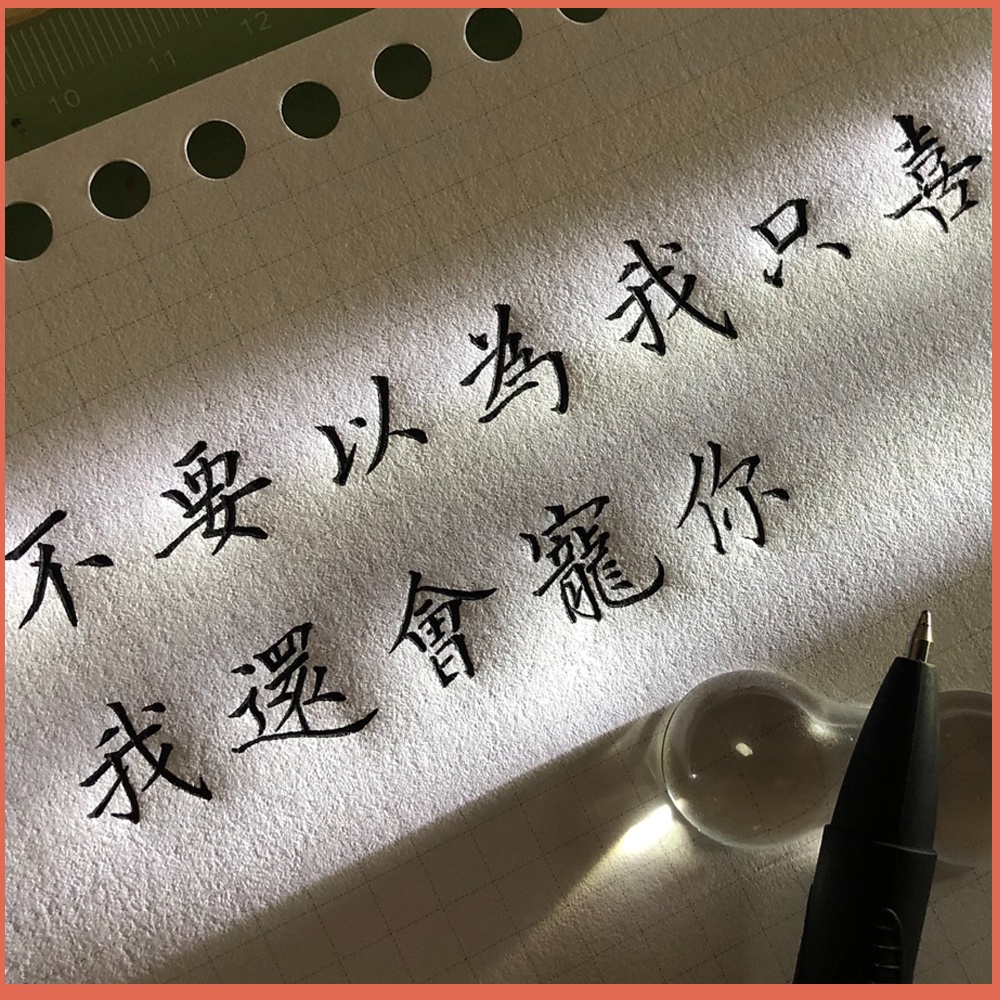 10 11 12
不要以為我只喜
我還會寵你